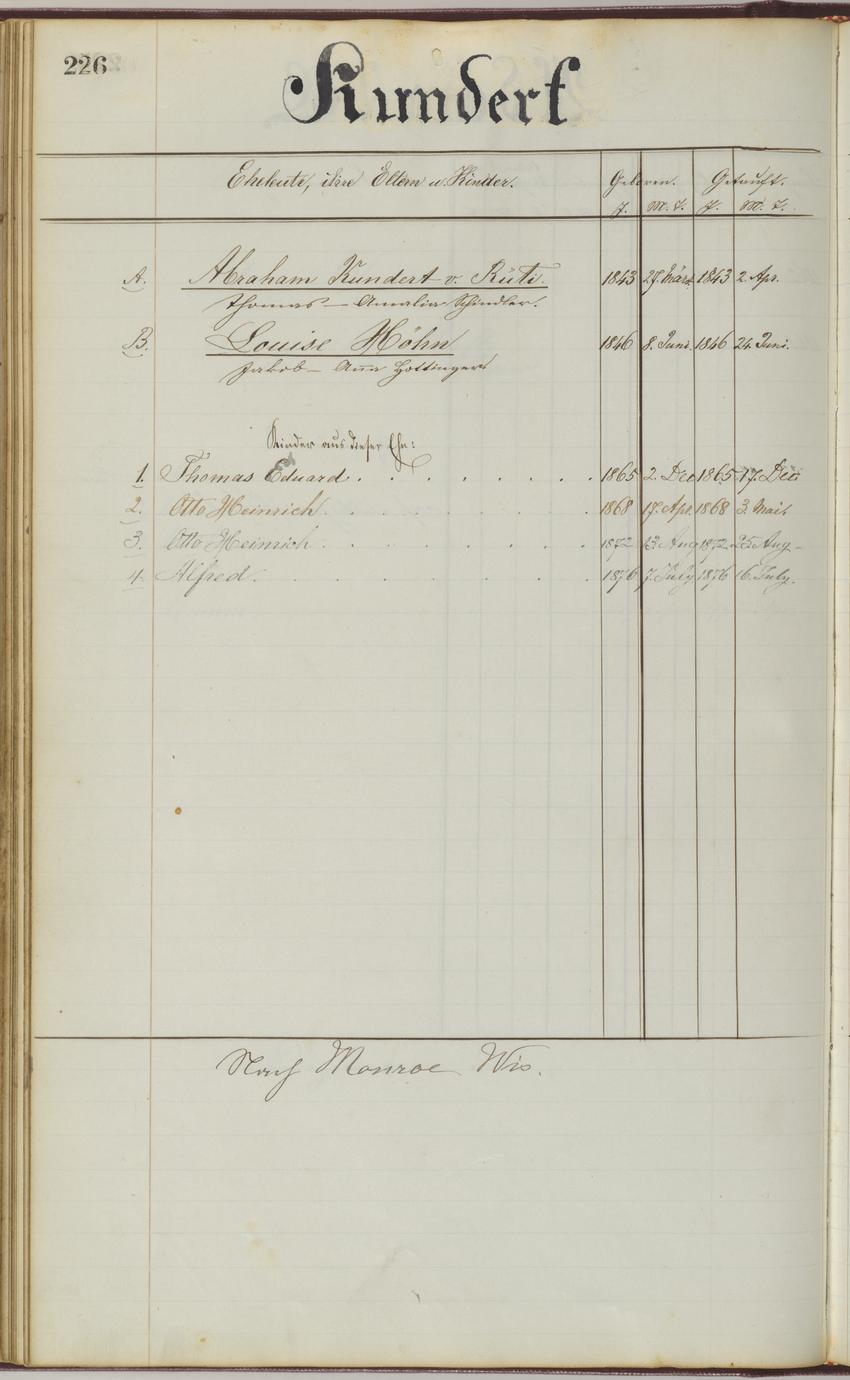 226
Kundert
Eheleute, ihre Eltern u. Kinder. Geboren. Getauft.
J. M. T. J. M. T.
A. Abraham Kundert v. Rüti. 1843 27. März 1843 2. Apr.
Thomas — Amalia Schindler.
B. Louise Höhn 1846 8. Juni. 1846 24. Juni.
Jakob — Anna Hottinger
Kinder aus dieser Ehe:
1. Thomas Eduard . . . . . . . . 1865 2. Dec 1865 17. Dec
2. Otto Heinrich . . . . . . . 1868 17. Apr. 1868 3. Mai.
3. Otto Heinrich . . . . . . . 1872 13. Aug 1872 25. Aug-
4. Alfred . . . . . . . . 1876 7. July 1876 16. July.
Nach Monroe Wis.